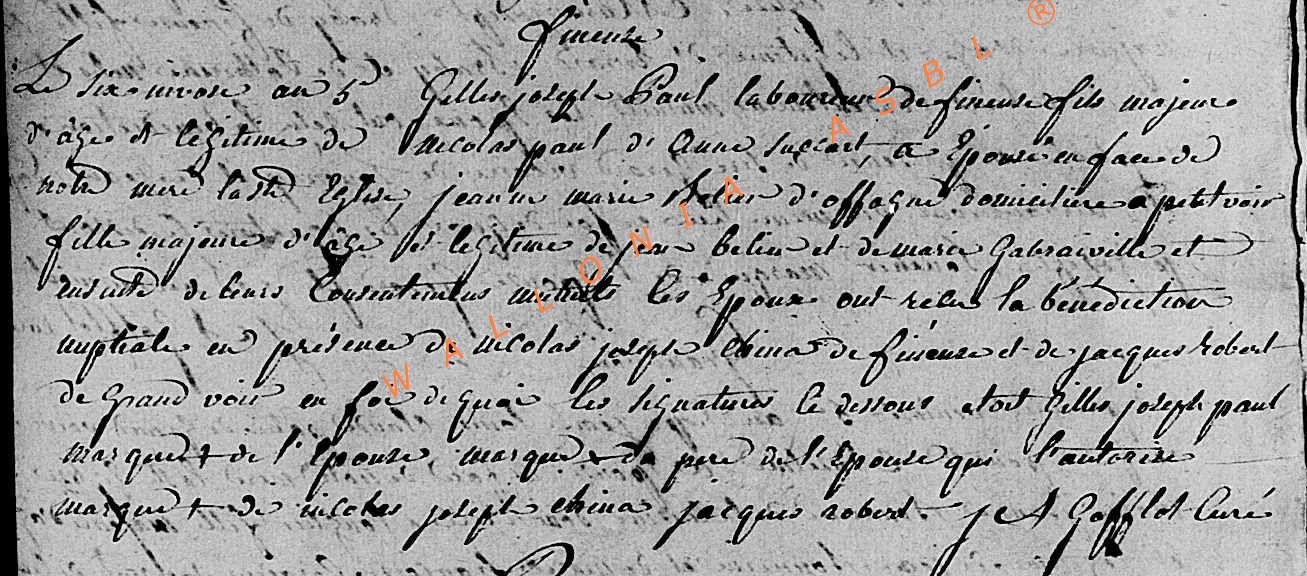 fineuse
Le six nivose an 5 Gilles joseph Paul laboureur de fineuse fils majeur
d'âge et légitime de Nicolas paul d'Anne Succart, a Epousé en face de
notre mere la ste Eglise, jeanne marie Belin d'offagne domiciliere a petit voir
fille majeure d'âge et legitime de jean belin et de marie Gabraiville et
ensuite de leurs Consentemens mutuels les Epoux ont recu la bénédiction
nuptiale en présence de nicolas joseph china de fineuse et de jacques robert
de Grand voir en foi de quoi les signatures ce dessous etoit Gilles joseph paul
marque + de l'Epouse, marque + du pere de l'Epouse qui l'autorise
marque + de nicolas joseph china jacques robert. j A Gofflot Curé
WALLONIA ASBL ®